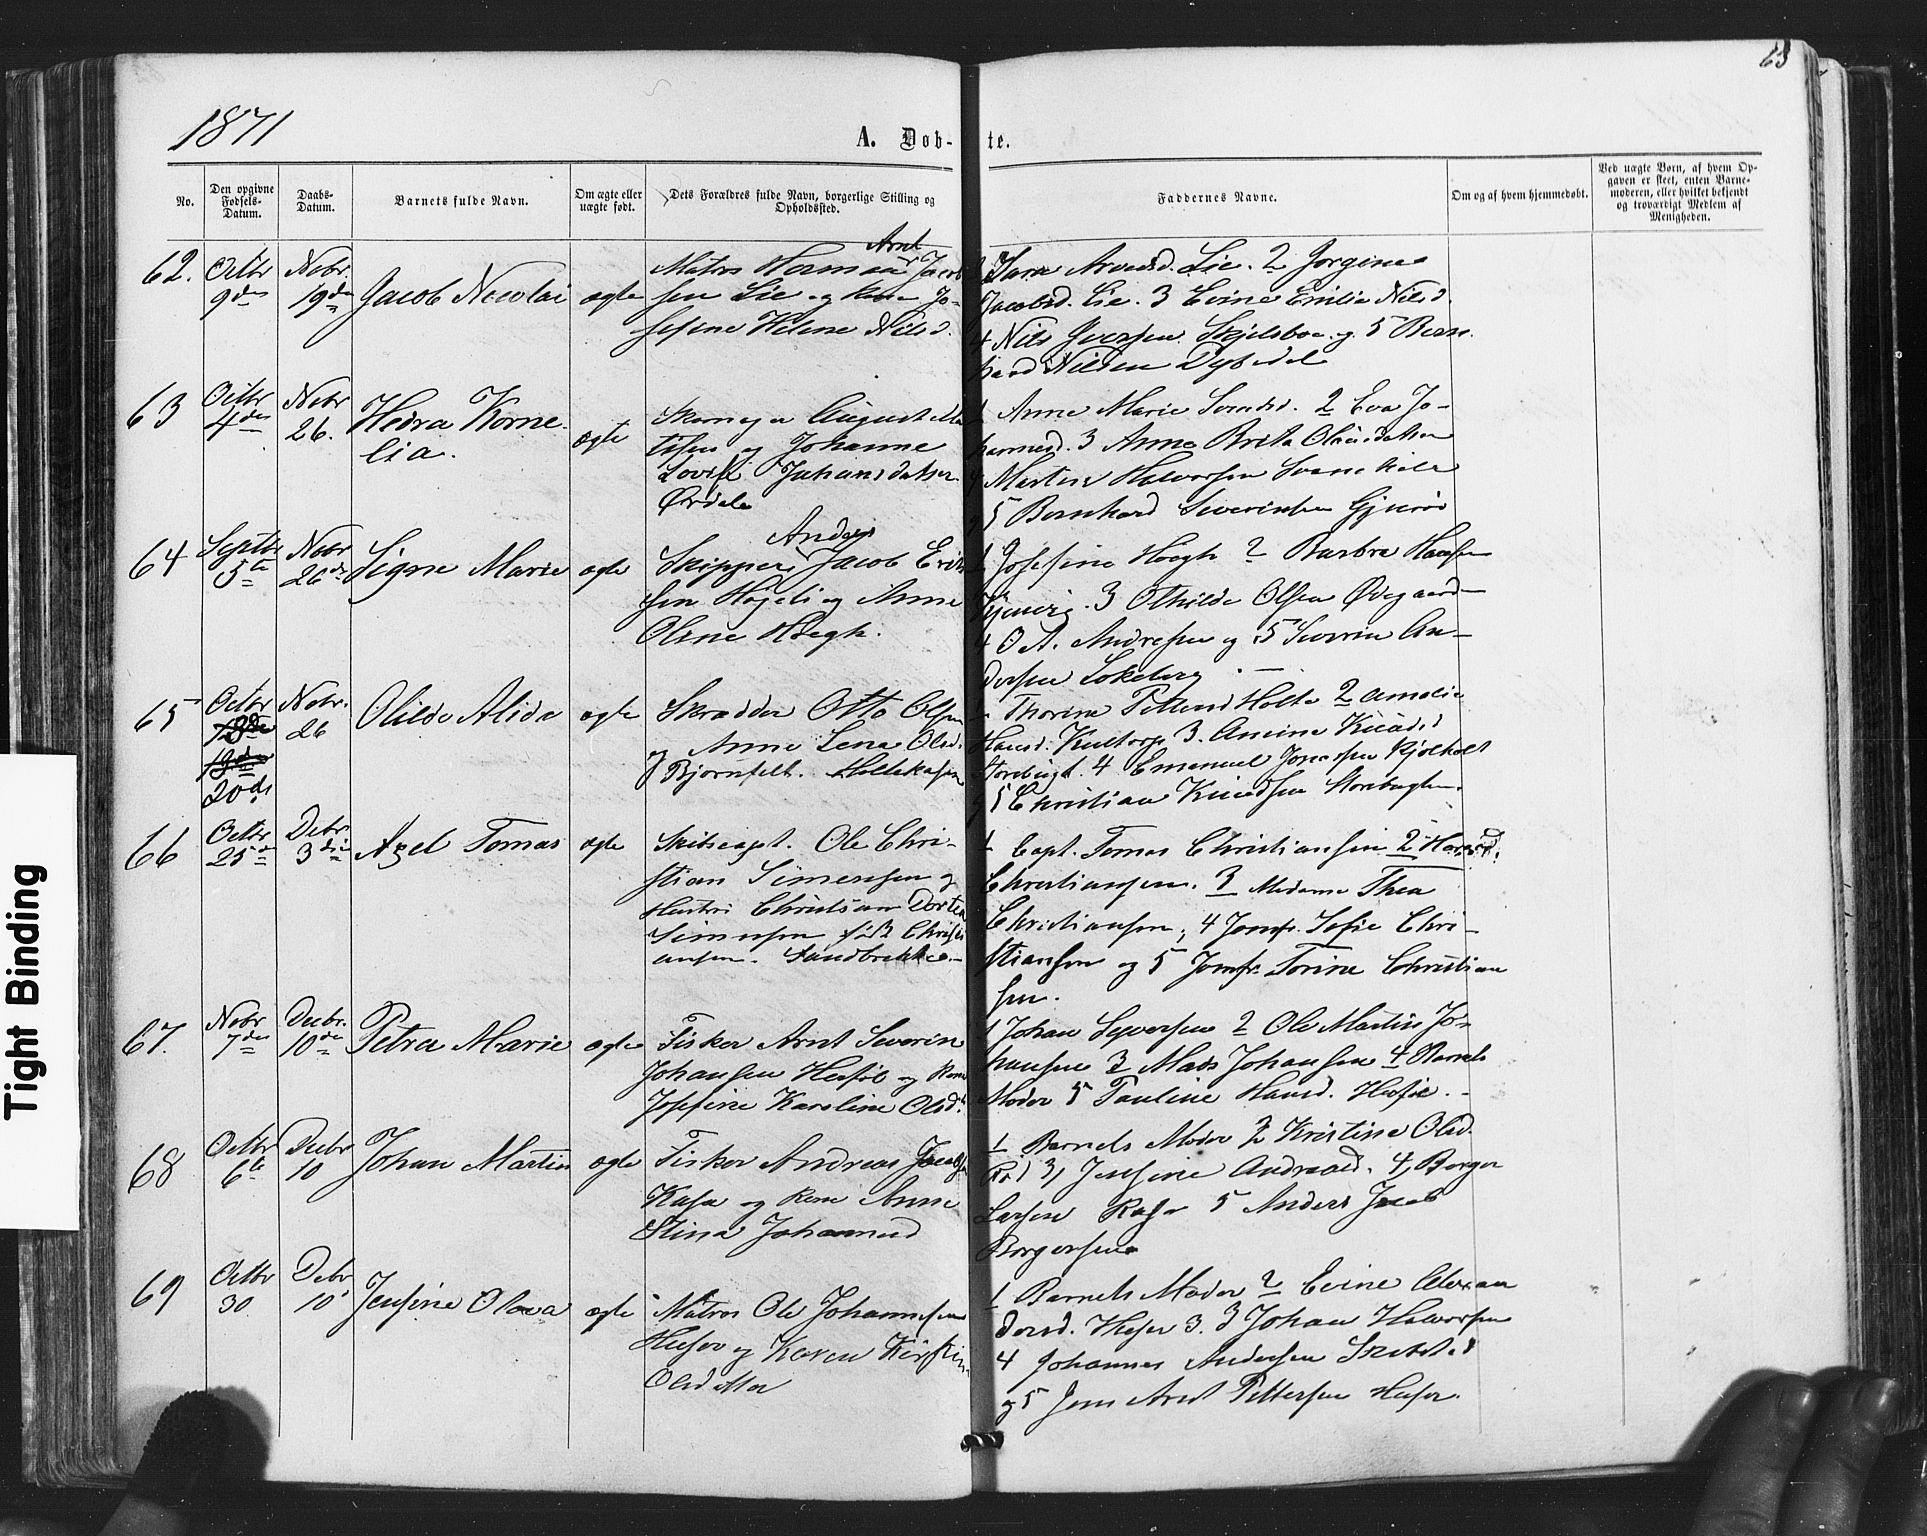 63
1871
A. Døb-te.
No.
Den opgivne Fødsels-Datum.
Daabs-Datum.
Barnets fulde Navn.
Om ægte eller uægte født.
Dets Forældres fulde Navn, borgerlige Stilling og Opholdssted.
Faddernes Navne.
Om og af hvem hjemmedøbt.
Ved uægte Børn, af hvem Op-
gaven er skeet, enten Barne-
moderen, eller hvilket bekjendt
og troværdigt Medlem af
Menigheden.
62. Octbr 9de Novbr. 19de Jacob Nicolai ægte
Arnt
Matros Herman Jacob
sen Lie og Kone Jo-
sefine Helene Nilsd.
Arvesd. Lie. 2 Jorgine
Jacobsd. Lie. 3 Evine Emilie Nilsd.
4 Nils Iversen og 5 Bern
hard Nilsen Dybedal
63 Octbr 4de Novbr 26. Hedva Korne-
lia. ægte
August Ma
tisen og Johanne
Lovise Johansdatter
Ørdale
1 Anne Marie 2 Eva Jo-
hannesd. 3 Anne Brita Olausdatter
4 Martin Halvorsen Svanekile
5 Bernhard Severinsen
64 Septbr 5te Novbr 26de Signe Marie ægte
Anders
Skipper Jacob Erik
sen Høgeli og Anne
Oline Høegh.
1 Josefine Høegh 2 Barbra Hansen
3 Othilde Olsen Ødegaard
4 O A. Andresen og 5 Severin An-
dersen Lokeberg
65 Octbr 20de Novbr. 26 Olilde Alida ægte
Skrædder Otto Olsen
og Anne Lena Olsd.
Bjørnfelt. Holtekasen
Thorine Pettersd Holte 2 Amalie
Hansd. Kultorp 3. Anine Knudsd
Storebugt. 4 Emanuel Jonassen Kjølholt
5 Christian Knudsen Storebugten.
66 Octbr 25de Debr. 3die Axel Tomas ægte
Skibscapt. Ole Chri-
stian Simensen og
Hustru Christiane Dortea
Simensen født Christi
ansen. Sandbrekke.-
1 Capt. Tomas Christiansen 2
Christiansen. 3 Madame Thea
Christiansen, 4 Jomfr. Sofie Chri-
stiansen og 5 Jomfr. Torine Christian
sen.
67. Novbr 7de Decbr. 10de Petra Marie ægte
Fisker Arnt Severin
Johansen Herføl og Kone
Josefine Karoline Olsd.
1 Johan Syversen 2 Ole Martin Jo-
hansen 3 Mads Johansen 4 Barnets
Moder 5 Pauline Hansd. Herføl.
68 Octbr 6te Decbr 10 Johan Martin ægte
Fisker Andreas Jacobsen
og Kone Anne
Stina Johannesd
1 Barnets Moder 2 Kristine Olsd.
3 Josefine Andreasd. 4, Borger
Larsen 5 Anders Jacob
Borgersen
69 Octbr 30 Debr 10 Josefine Olava ægte
Matros Ole Johannesen
Huser og Karen Kirstine
Olsdatter
1 Barnets Moder 2 Evine Alexan
dersd. Huser 3. 3 Johan Halvorsen
4 Johannes Andersen
og 5 Jens Arnt Pettersen Huser.
Tight Binding